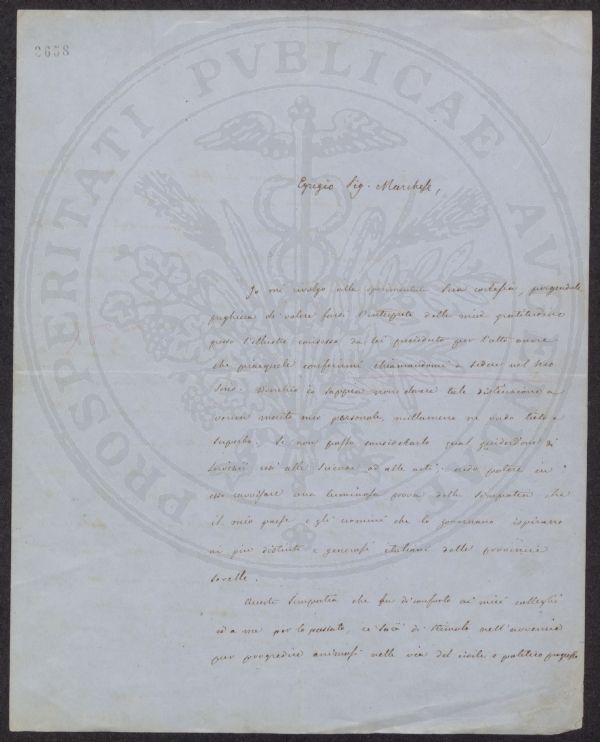 2658
PROSPERITATI PVBLICAE AVG
Egregio Sig. Marchese,
Io mi rivolgo alla sperimentata Sua cortesia, porgendole
preghiera di volere farsi l'interprete della mia gratitudine
presso l'illustre consesso da lei presieduto per l'alto onore
che piacquele conferirmi chiamandomi a sedere nel seno
suo. Benchè io sappia non dovere tale distinzione a
verun merito mio personale, nullameno ne vado lieto e
superbo. Se non posso considerarlo qual guiderdone di
servizi resi alle scienze od alle arti, credo potere in
esso ravvisare una luminosa prova della simpatia che
il mio paese e gli uomini che lo governano ispirarono
ai più distinti e generosi italiani delle provincie
sorelle.
Questa simpatia che fu di conforto ai miei colleghi
ed a me per lo passato, ci sarà di stimolo nell'avvenire
per progredire animosi nella via del civile e politico progresso